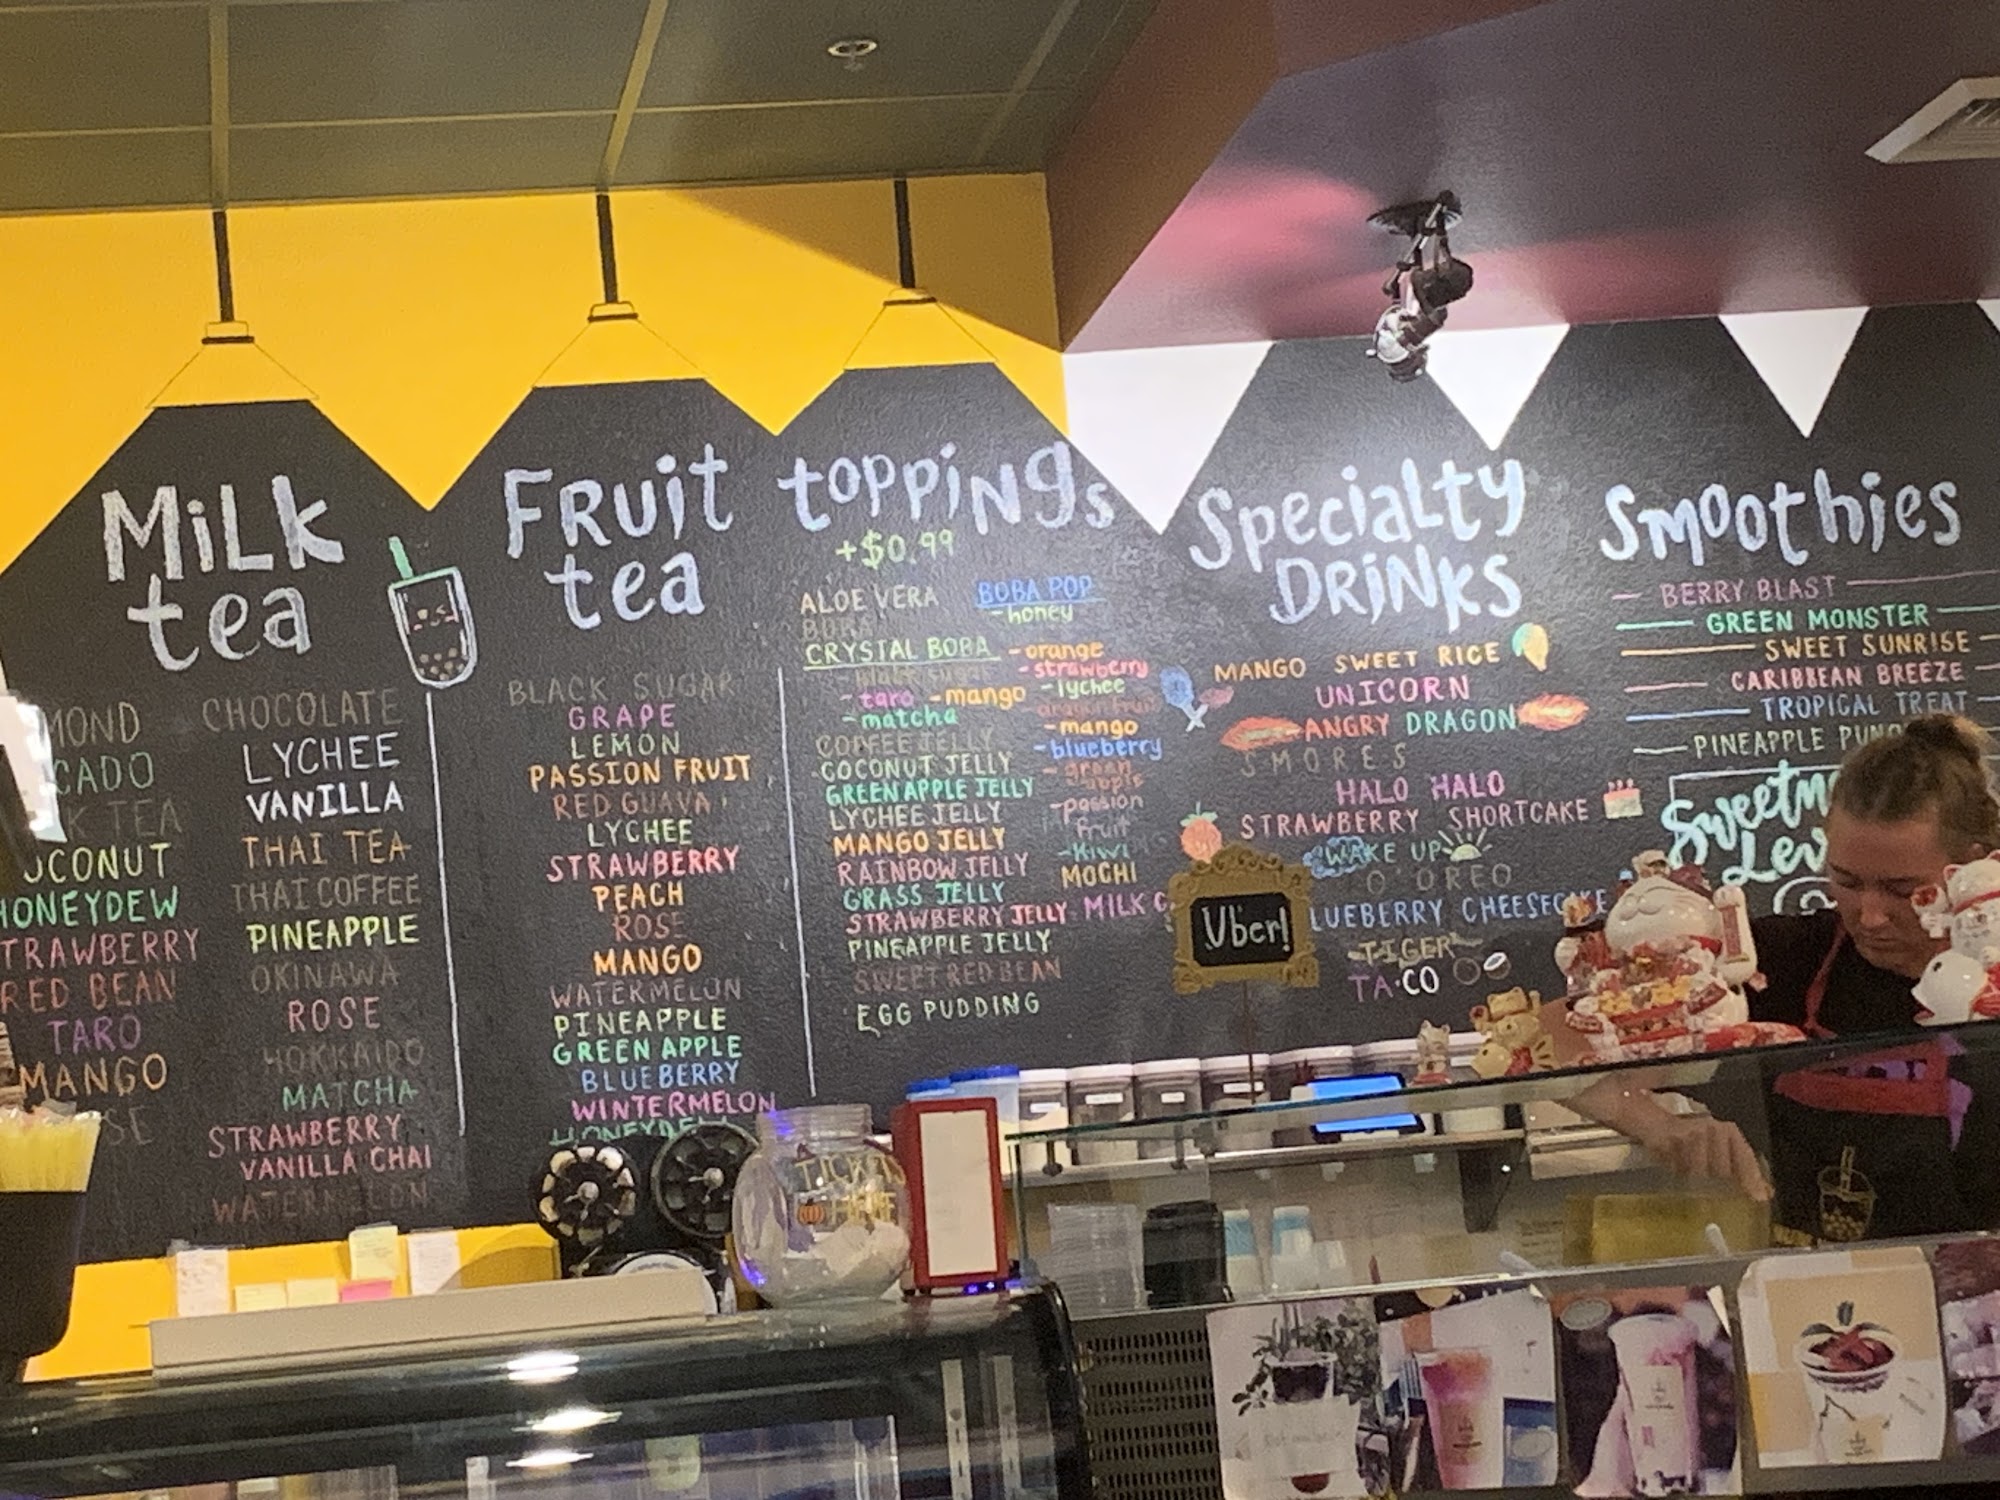 Milk
tea
CHOCOLATE
LYCHEE
VANILLA
THAI TEA
HONEYDEW
THAI COFFEE
PINEAPPLE
RED BEAN
OKINAWA
TARO
ROSE
MANGO
HOKKAIDO
MATCHA
STRAWBERRY
VANILLA CHAI
WATERMELON
FRuit
tea
BLACK SUGAR
GRAPE
LEMON
PASSION FRUIT
RED GUAVA
LYCHEE
STRAWBERRY
PEACH
ROSE
MANGO
WATERMELON
PINEAPPLE
GREEN APPLE
BLUEBERRY
WINTERMELON
HONEYDEW
toppiNgs
+$0.99
ALOE VERA
BOBA
CRYSTAL BOBA
- black sugar
- taro - mango
- matcha
COFFEE JELLY
COCONUT JELLY
GREEN APPLE JELLY
LYCHEE JELLY
MANGO JELLY
RAINBOW JELLY
GRASS JELLY
STRAWBERRY JELLY
PINEAPPLE JELLY
SWEET RED BEAN
EGG PUDDING
BOBA POP
- honey
- orange
- strawberry
- lychee
dragon fruit
- mango
- blueberry
- green
apple
- passion
fruit
- kiwi
MOCHI
MILK
Specialty
DRiNKs
MANGO SWEET RICE
UNICORN
ANGRY DRAGON
SMORES
HALO HALO
STRAWBERRY SHORTCAKE
WAKE UP
O'OREO
CHEESECAKE
TIGER
TA·CO
Uber!
Smoothies
BERRY BLAST
GREEN MONSTER
SWEET SUNRISE
CARIBBEAN BREEZE
TROPICAL TREAT
PINEAPPLE
TICKETS